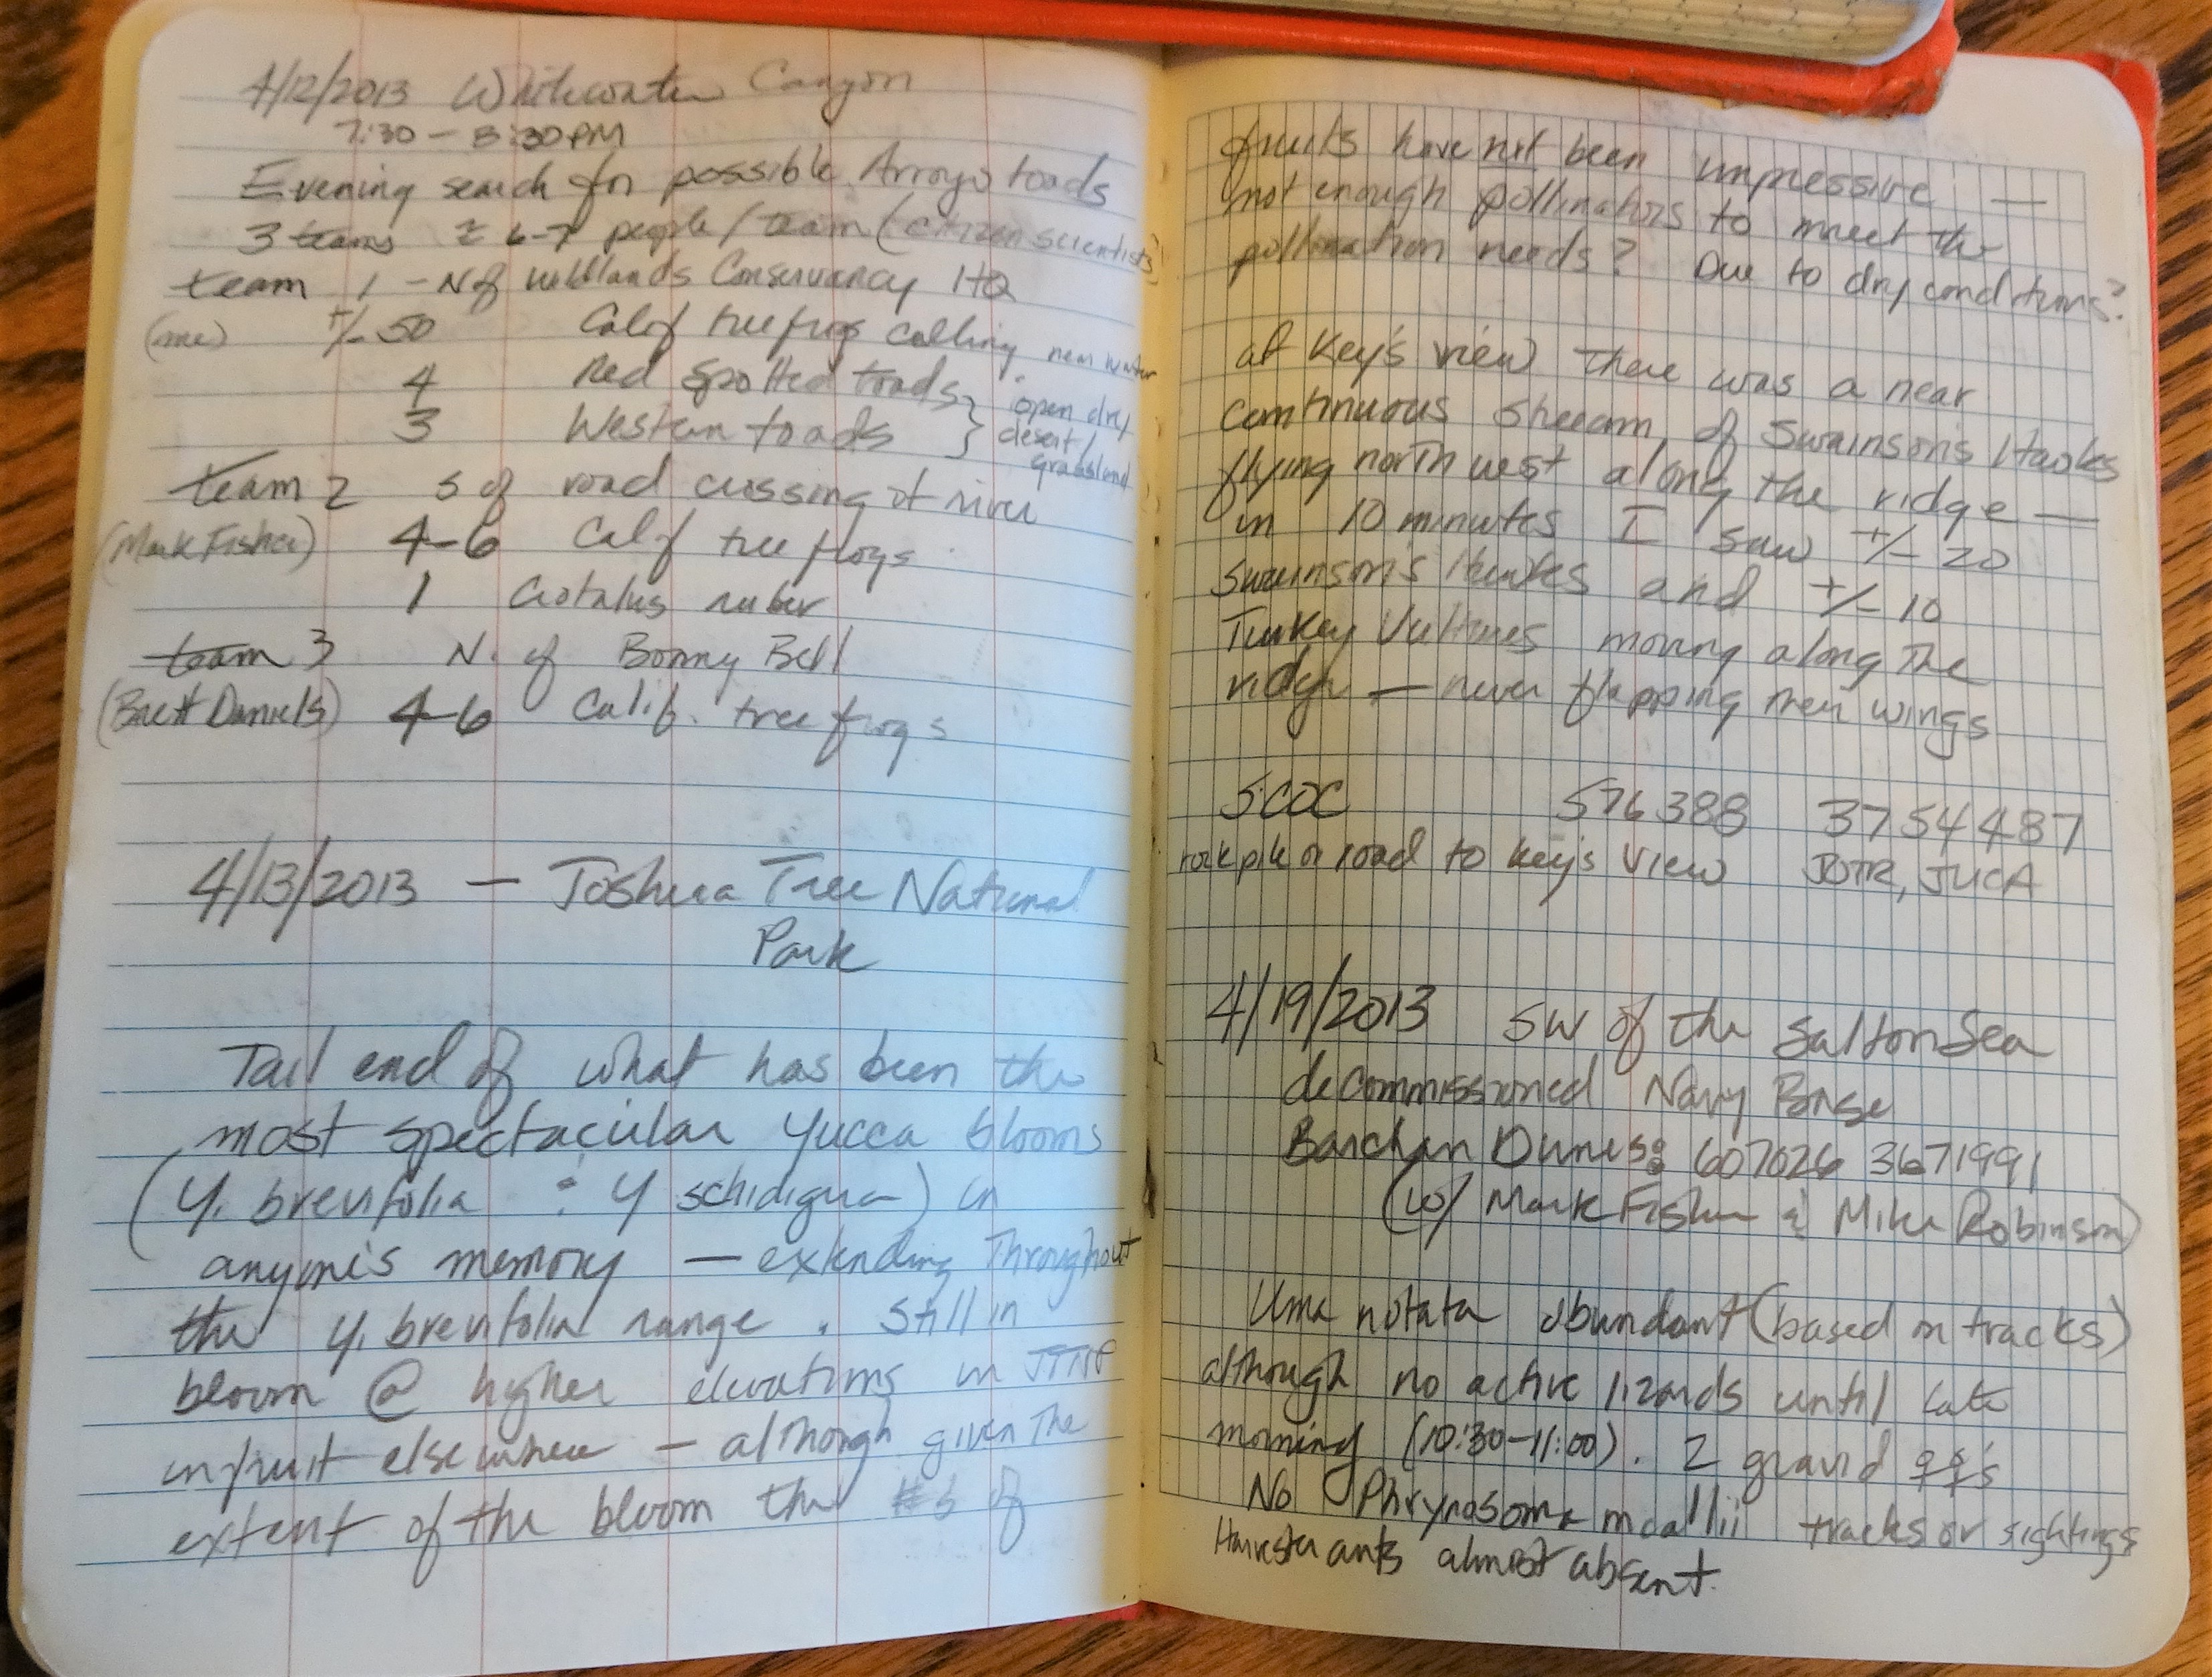 4/12/2013 Whitewater Canyon
7:30 - 8:30 PM
Evening search for possible Arroyo toads
3 teams ± 6-7 people/team (citizen scientists)
team 1 - N of Wildlands Conservancy HQ
(me) +/- 50 Calif tree frogs calling near water
4 Red Spotted toads } open dry
3 Western toads } desert/
grassland
team 2 S of road crossing of river
(Mark Fisher) 4-6 Calif tree frogs
1 Crotalus ruber
team 3 N. of Bonny Bell
(Brett Daniels) 4-6 Calif. tree frogs
4/13/2013 - Joshua Tree National
Park
Tail end of what has been the
most spectacular yucca blooms
(Y. brevifolia & Y schidigera) in
anyone's memory - extending throughout
the Y. brevifolia range. Still in
bloom @ higher elevations in JTNP
in fruit elsewhere - although given the
extent of the bloom the #s of
fruits have not been impressive —
not enough pollinators to meet the
pollination needs? Due to dry conditions?
at Key's view there was a near
continuous streeam of Swainson's Hawks
flying northwest along the ridge —
in 10 minutes I saw +/- 20
Swainson's Hawks and +/- 10
Turkey Vultures moving along the
ridge — never flapping their wings
SCOC 576388 3754487
rock pile on road to Key's View JOTR, JUCA
4/19/2013 SW of the Salton Sea
decommissioned Navy Base
Barchan Dunes: 607026 3671991
(w/ Mark Fisher & Mike Robinson)
Uma notata abundant (based on tracks)
although no active lizards until late
morning (10:30-11:00). 2 gravid ♀♀'s
No Phrynosoma mcallii tracks or sightings
Harvester ants almost absent.